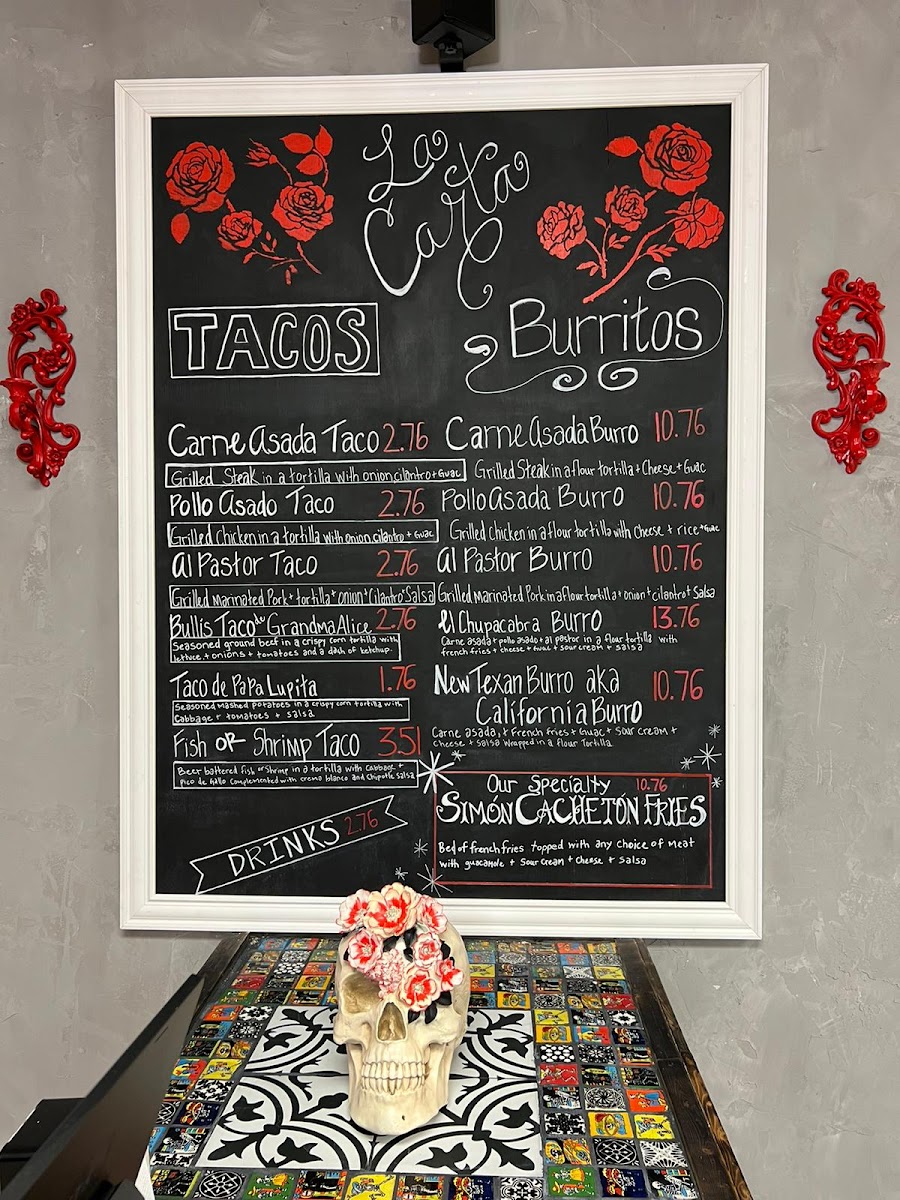 La
Carta
TACOS
Carne Asada Taco 2.76
Grilled Steak in a tortilla with onion cilantro + Guac
Pollo Asado Taco 2.76
Grilled Chicken in a tortilla with onion, cilantro + Guac
Al Pastor Taco 2.76
Grilled Marinated Pork + tortilla + onion + cilantro + Salsa
Bullis Taco de Grandma Alice 2.76
Seasoned ground beef in a crispy corn tortilla with
lettuce + onions + tomatoes and a dash of ketchup.
Taco de Papa Lupita 1.76
Seasoned mashed potatoes in a crispy corn tortilla with
Cabbage + tomatoes + salsa
Fish OR Shrimp Taco 3.51
Beer battered fish or Shrimp in a tortilla with Cabbage +
Pico de Gallo complemented with crema blanco and Chipotle Salsa
DRINKS 2.76
Burritos
Carne Asada Burro 10.76
Grilled Steak in a flour tortilla + Cheese + Guac
Pollo Asada Burro 10.76
Grilled Chicken in a flour tortilla with Cheese + rice + Guac
Al Pastor Burro 10.76
Grilled Marinated Pork in a flour tortilla + onion + cilantro + Salsa
El Chupacabra Burro 13.76
Carne asada + pollo asado + al pastor in a flour tortilla with
french fries + cheese + Guac + sour cream + salsa
New Texan Burro aka 10.76
California Burro
Carne asada, + French fries + Guac + Sour Cream +
Cheese + Salsa Wrapped in a flour Tortilla
Our Specialty 10.76
SIMÓN CACHETÓN FRIES
Bed of french fries topped with any choice of meat
with guacamole + Sour cream + cheese + salsa